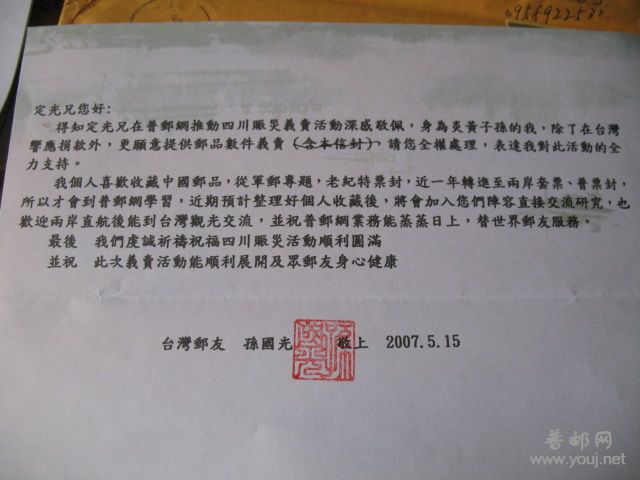 0958922530
定光兄您好:
得知定光兄在普郵網推動四川賑災義賣活動深感敬佩，身為炎黃子孫的我，除了在台灣
響應捐款外，更願意提供郵品數件義賣(含本信封)，請您全權處理，表達我對此活動的全
力支持。
我個人喜歡收藏中國郵品，從軍郵專題，老紀特票封，近一年轉進至兩岸套票、普票封，
所以才會到普郵網學習，近期預計整理好個人收藏後，將會加入您們陣容直接交流研究，也
歡迎兩岸直航後能到台灣觀光交流，並祝普郵網業務能蒸蒸日上，替世界郵友服務。
最後 我們虔誠祈禱祝福四川賑災活動順利圓滿
並祝 此次義賣活動能順利展開及眾郵友身心健康
台灣郵友 孫國光 敬上 2007.5.15
普邮网
www.youj.net